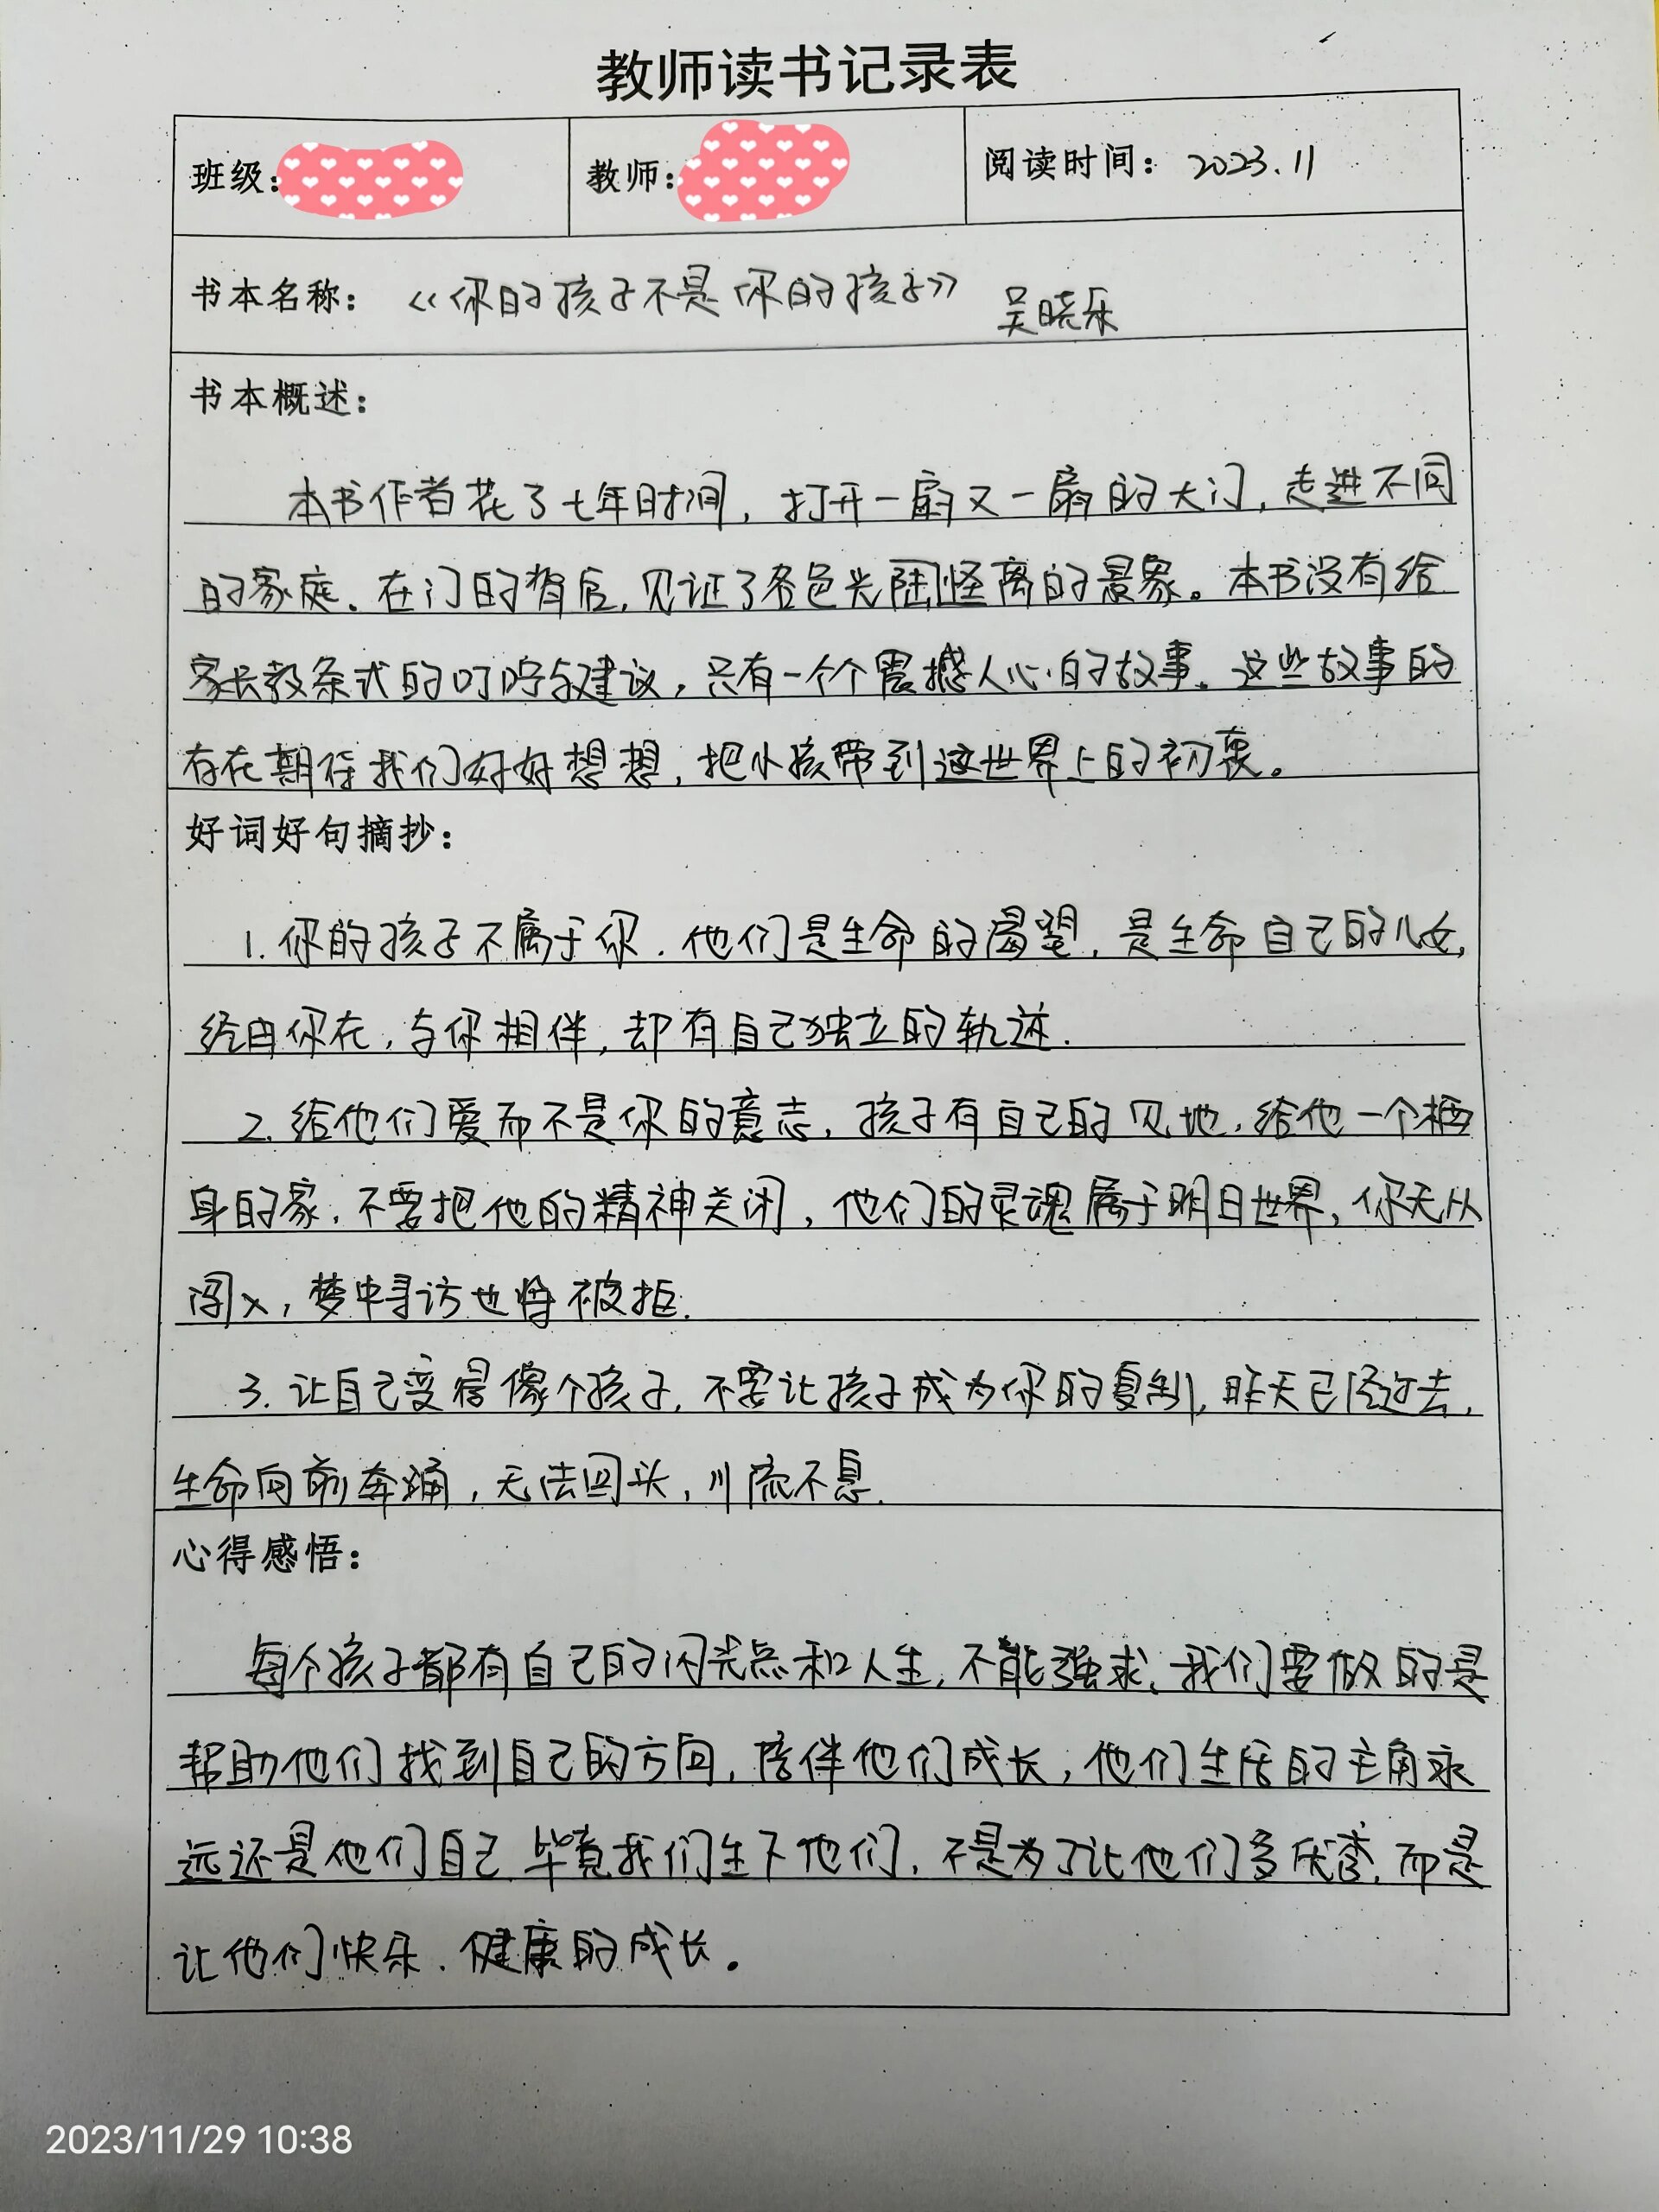 教师读书记录表
班级：
教师：
阅读时间： 2023.11
书本名称： 《你的孩子不是你的孩子》 吴晓乐
书本概述：
本书作者花了七年时间，打开一扇又一扇的大门，走进不同
的家庭。在门的背后，见证了各色光陆怪离的景象。本书没有给
家长教条式的叮咛与建议，只有一个个震撼人心的故事。这些故事的
存在期待我们好好想想，把小孩带到这世界上的初衷。
好词好句摘抄：
1. 你的孩子不属于你．他们是生命的渴望，是生命自己的儿女，
经由你在，与你相伴，却有自己独立的轨迹．
2. 给他们爱而不是你的意志，孩子有自己的见地，给他一个栖
身的家，不要把他的精神关闭，他们的灵魂属于明日世界，你无从
闯入，梦中寻访也将被拒．
3. 让自己变得像个孩子，不要让孩子成为你的复制，昨天已经过去，
生命向前奔涌，无法回头，川流不息．
心得感悟：
每个孩子都有自己的闪光点和人生，不能强求，我们要做的是
帮助他们找到自己的方向，陪伴他们成长，他们生活的主角永
远还是他们自己．毕竟我们生下他们，不是为了让他们多优秀，而是
让他们快乐．健康的成长。
2023/11/29 10:38